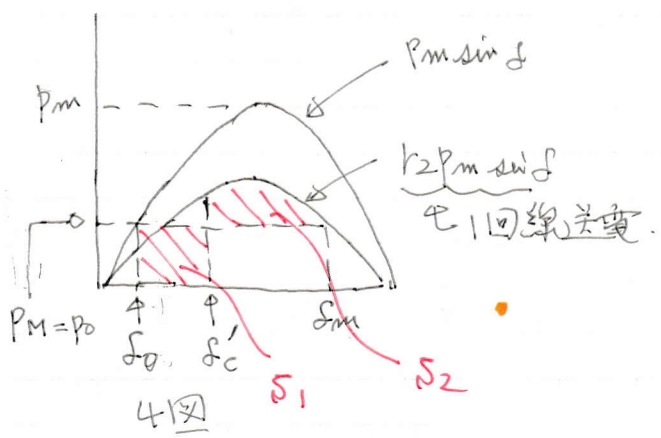 Pm sin δ
Pm
r2Pm sin δ
1回線送電.
PM=P0
δ0
δ'c
δm
S1
S2
4図